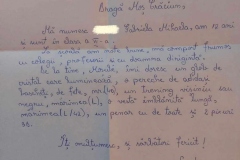 Dragă Moș Crăciun,
Mă numesc Gabriela Mihaela, am 12 ani
și sunt în clasa a V-a.
La școală am note bune, mă comport frumos
cu colegii, profesorii și cu doamna dirigintă.
De la tine, Moșule, îmi doresc un glob de
cristal care luminează, o pereche de adidași
împletiți, de fete, mov(40), un trening
negru, mărimea(L), o vestă îmblănită lungă,
mărimea L(42), un penar cu de toate și 2 pixuri
Îți mulțumesc, și sărbători fericit!